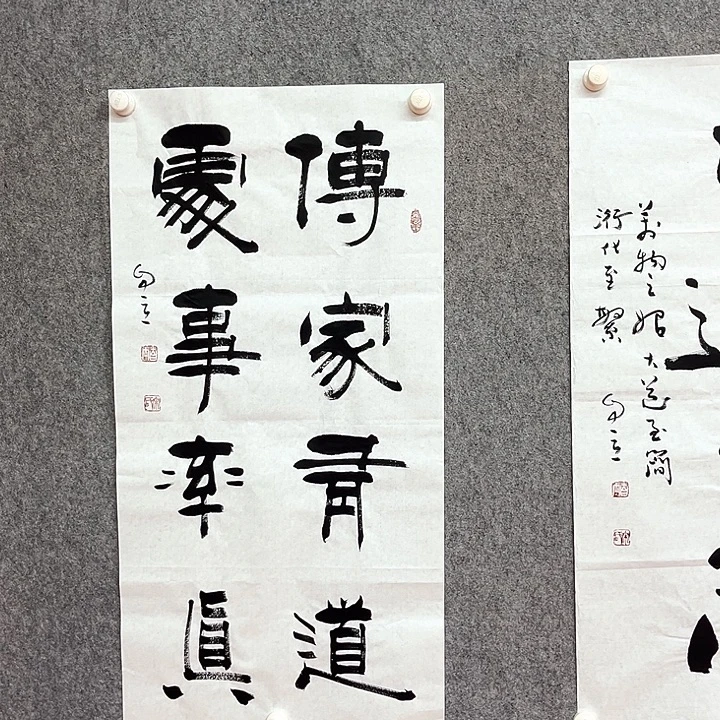 傳家有道
處事率眞
萬物之始大道至簡
衍化至繁